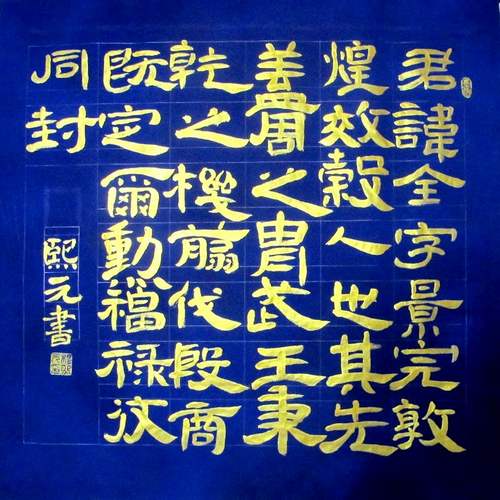 君諱全字景完敦
煌效穀人也其先
蓋周之胄武王秉
乾之機翦伐殷商
既定爾勳福祿攸
同封
熙元書